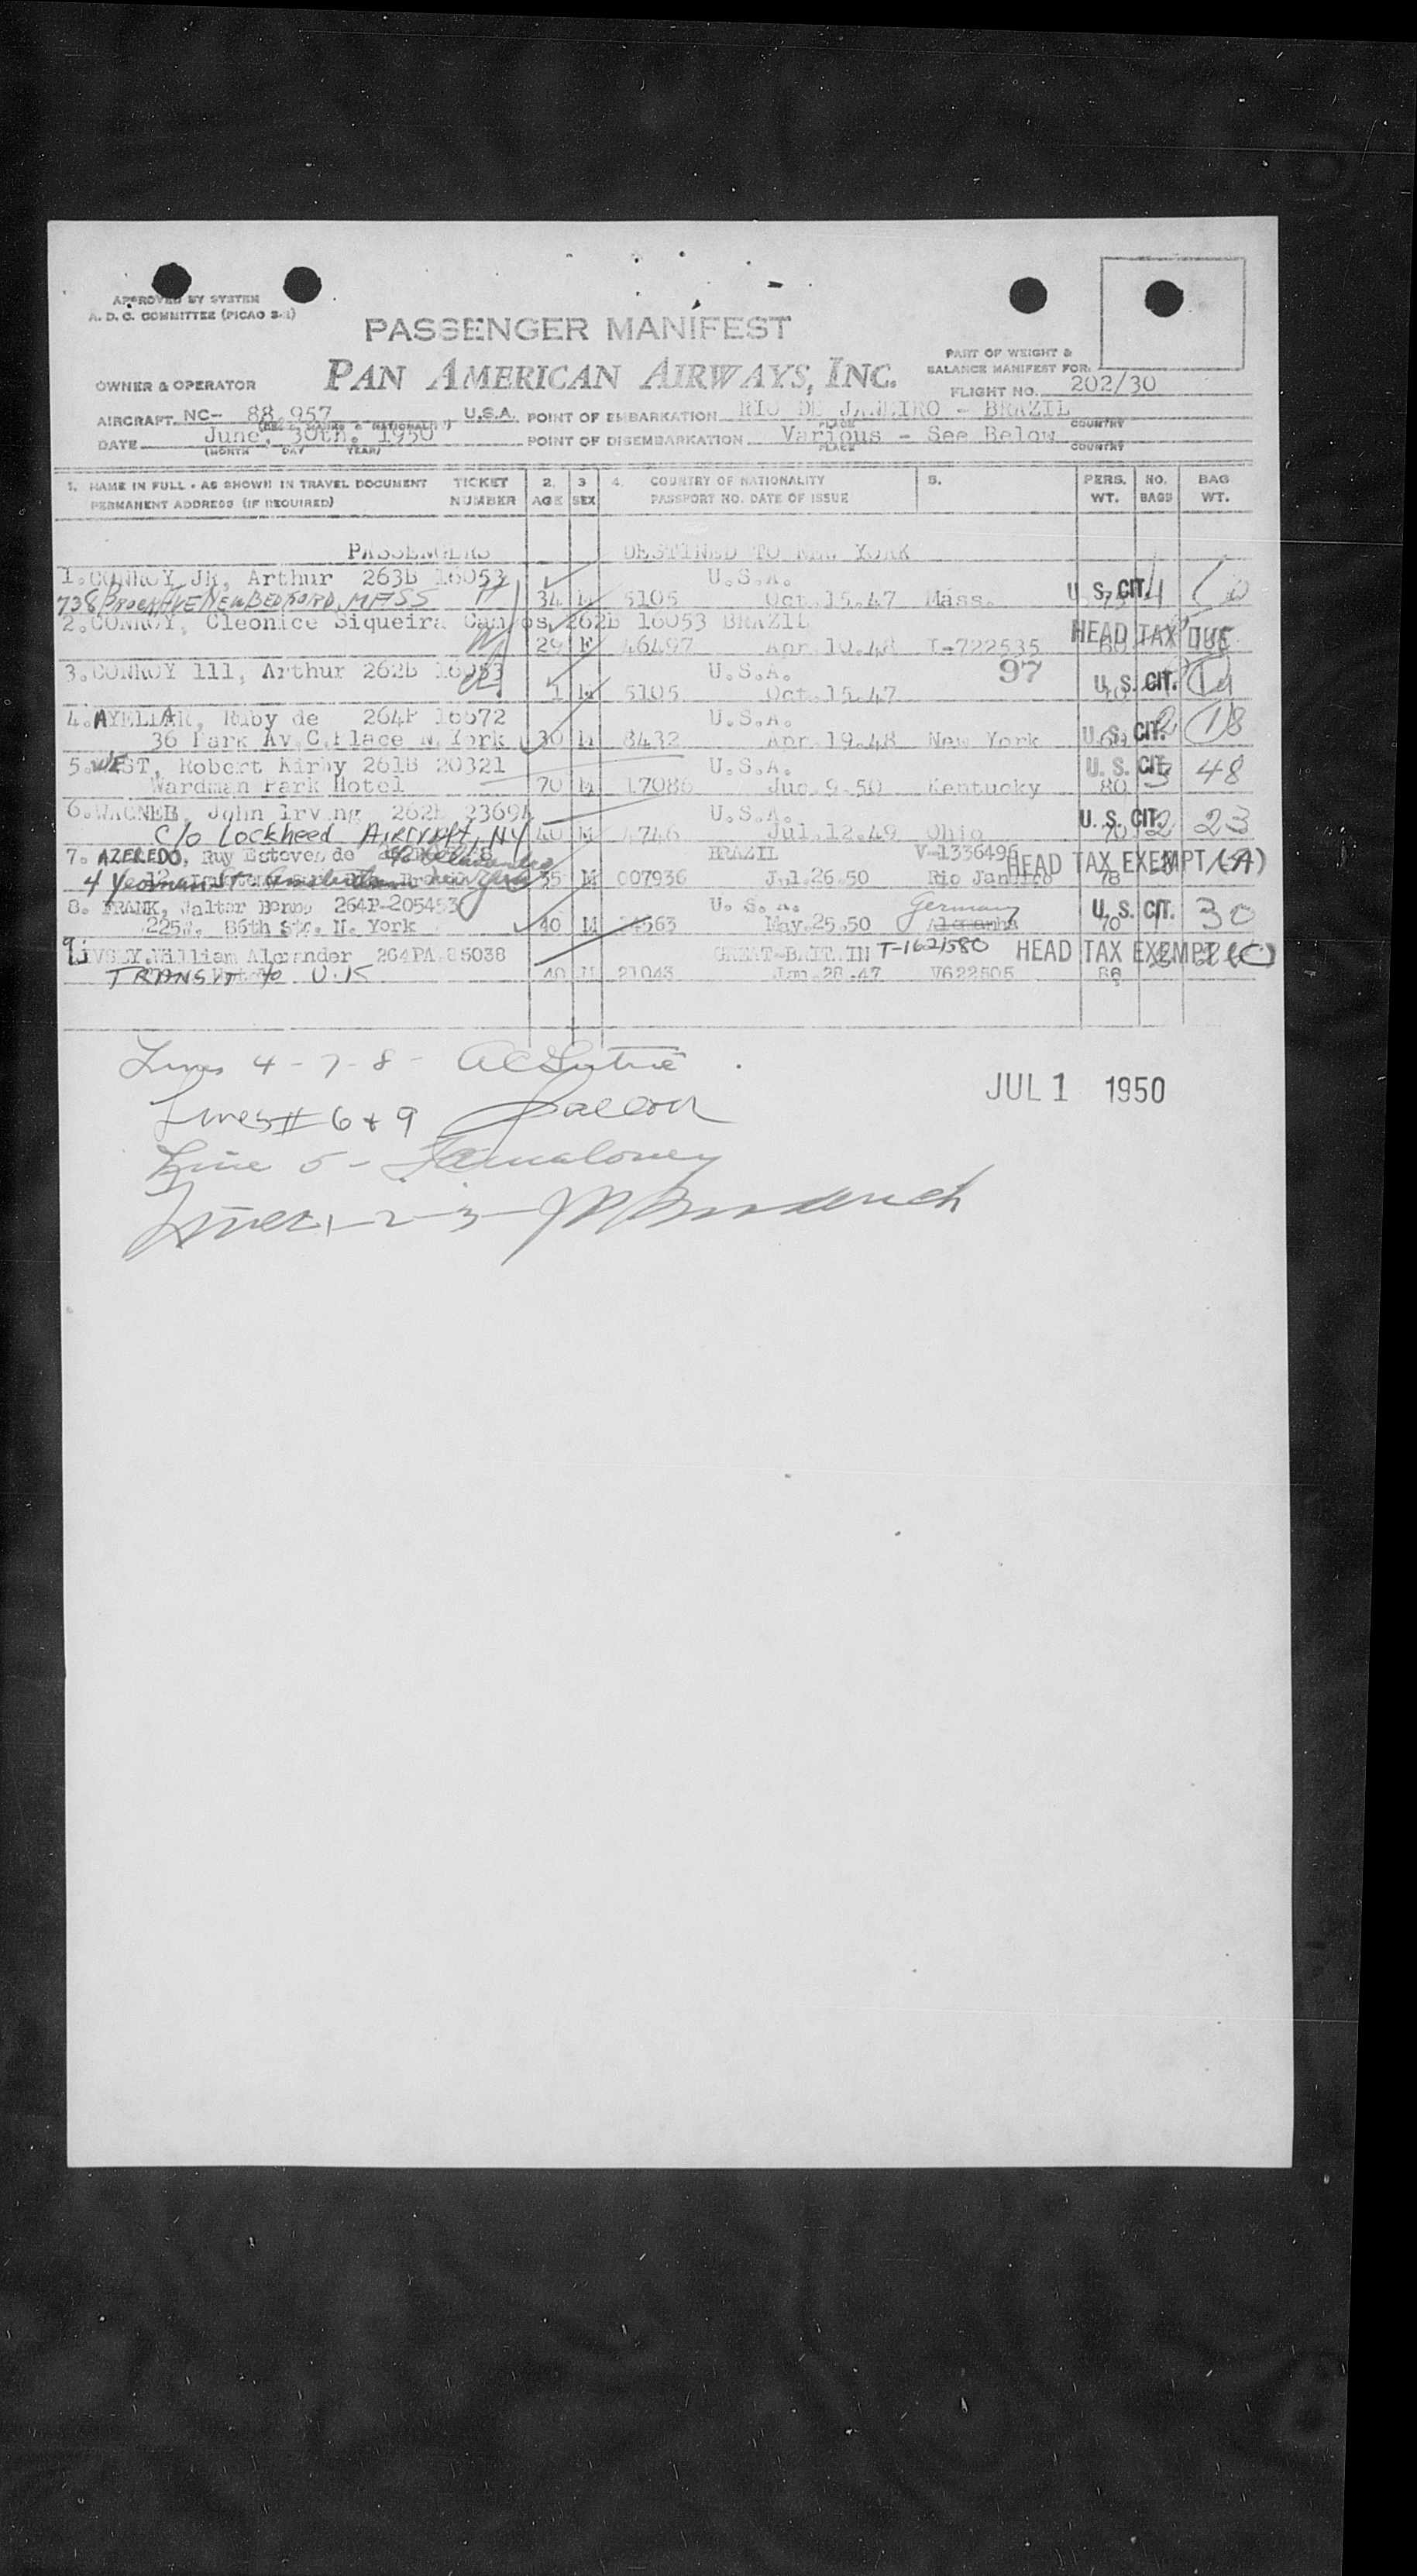 APPROVED BY SYSTEM
A. D. C. COMMITTEE (PICAO 2-1)
PASSENGER MANIFEST
PART OF WEIGHT &
BALANCE MANIFEST FOR:
OWNER & OPERATOR PAN AMERICAN AIRWAYS, INC. FLIGHT NO. 202/30
AIRCRAFT NC- 88.957 U.S.A. POINT OF EMBARKATION RIO DE JANEIRO - BRAZIL
(REG. MARKS & NATIONALITY) PLACE COUNTRY
DATE June, 30th. 1950 POINT OF DISEMBARKATION Various - See Below
(MONTH DAY YEAR) PLACE COUNTRY
1. NAME IN FULL - AS SHOWN IN TRAVEL DOCUMENT TICKET 2. 3 4. COUNTRY OF NATIONALITY 5. PERS. NO. BAG
PERMANENT ADDRESS (IF REQUIRED) NUMBER AGE SEX PASSPORT NO. DATE OF ISSUE WT. BAGS WT.
PASSENGERS DESTINED TO NEW YORK
1. CONROY JR, Arthur 263B 16053 U.S.A.
738 BROCK AVE NEW BEDFORD, MASS 34 M 5105 Oct.15.47 Mass. U. S. CIT.
2. CONROY, Cleonice Siqueira Campos, 262B 16053 BRAZIL
29 F 46497 Apr.10.48 I-722535 HEAD TAX DUE
3. CONROY 111, Arthur 262B 16053 U.S.A. 97
1 M 5105 Oct.15.47 U. S. CIT.
4. AYELLAR, Ruby de 264P 16672 U.S.A.
36 Park Av.C.Place N.York 30 M 8432 Apr.19.48 New York U. S. CIT. 18
5. WEST, Robert Kirby 261B 20321 U.S.A.
Wardman Park Hotel 70 M 17086 9.50 Kentucky 80 3 U. S. CIT. 48
6. WAGNER, John Irving 2369 U.S.A.
C/O Lockheed Aircraft, NY 40 M 4746 Jul.12.49 Ohio U. S. CIT. 2 23
7. AZEREDO, Ruy Esteves de BRAZIL V-1336496
4 Yeoman St. 35 M 007936 Jul.26.50 Rio Janeiro 78 HEAD TAX EXEMPT (A)
8. FRANK, Walter Benno 264P-205453 U. S. A. Germany
225W. 86th Str. N. York 40 M 563 May.25.50 Alemanha 70 1 U. S. CIT. 30
9. William Alexander 264PA 85038 GREAT-BRITAIN T-1621580 HEAD TAX EXEMPT (C)
TRANSIT to U.K 40 M 21043 Jan.28.47 V622505
Lines 4 - 7 - 8 -
JUL 1 1950
Lines # 6 + 9
Line 5 - Maloney
Lines 1-2-3-